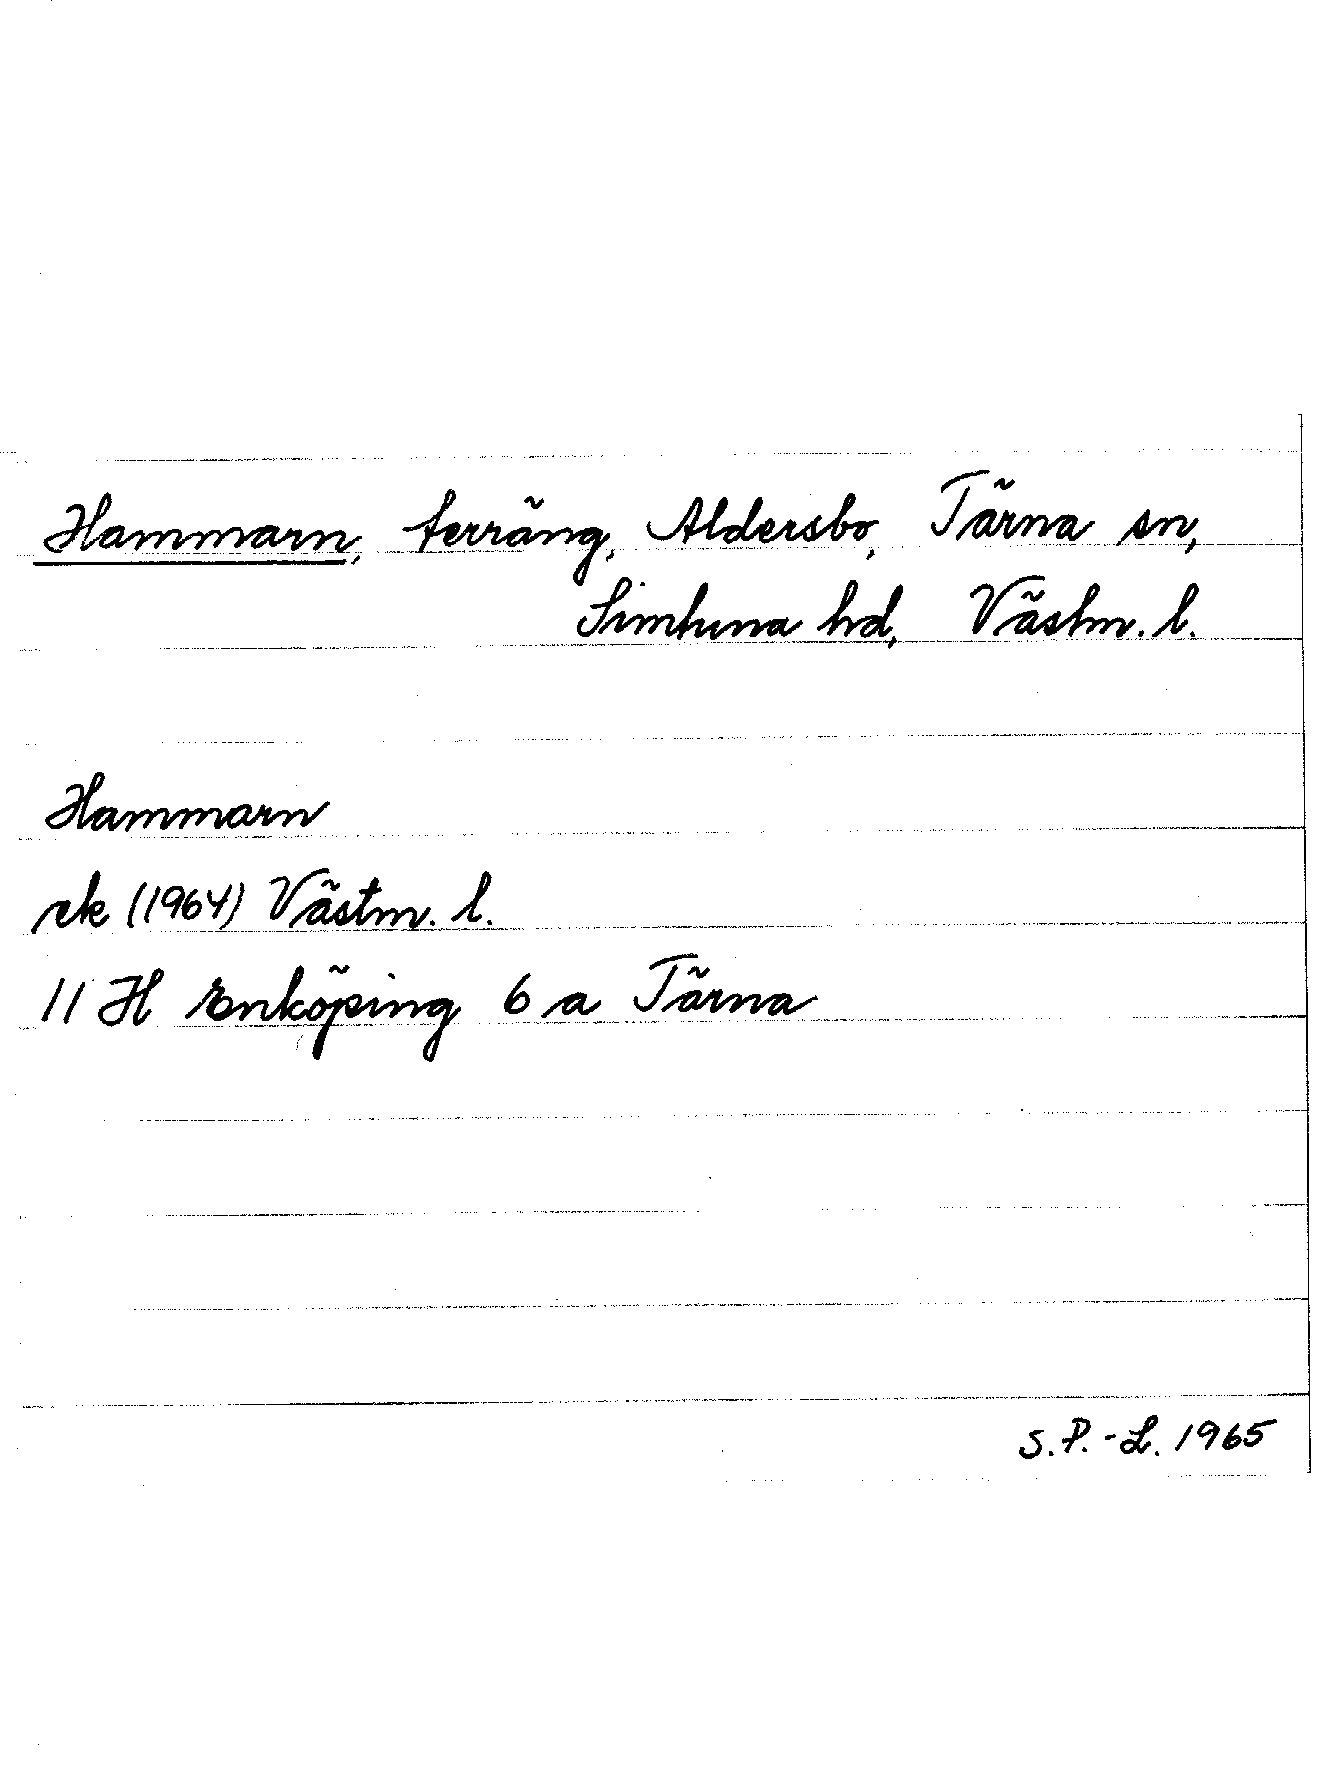 Hammarn, terräng, Aldersbo, Tärna sn,
Simtuna hd, Västm. l.
Hammarn
rek (1964) Västm. l.
11 H Enköping 6 a Tärna
S. P. - L. 1965